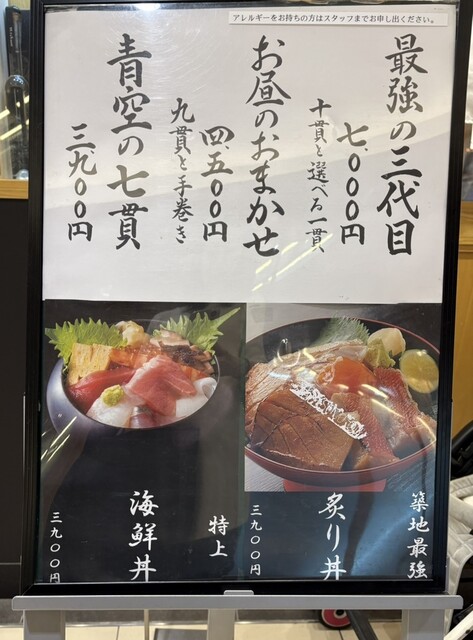 アレルギーをお持ちの方はスタッフまでお申し出ください。
最強の三代目
七、〇〇〇円
十貫と選べる一貫
お昼のおまかせ
四、五〇〇円
九貫と手巻き
青空の七貫
三、九〇〇円
築地最強
炙り丼
三九〇〇円
特上
海鮮丼
三九〇〇円